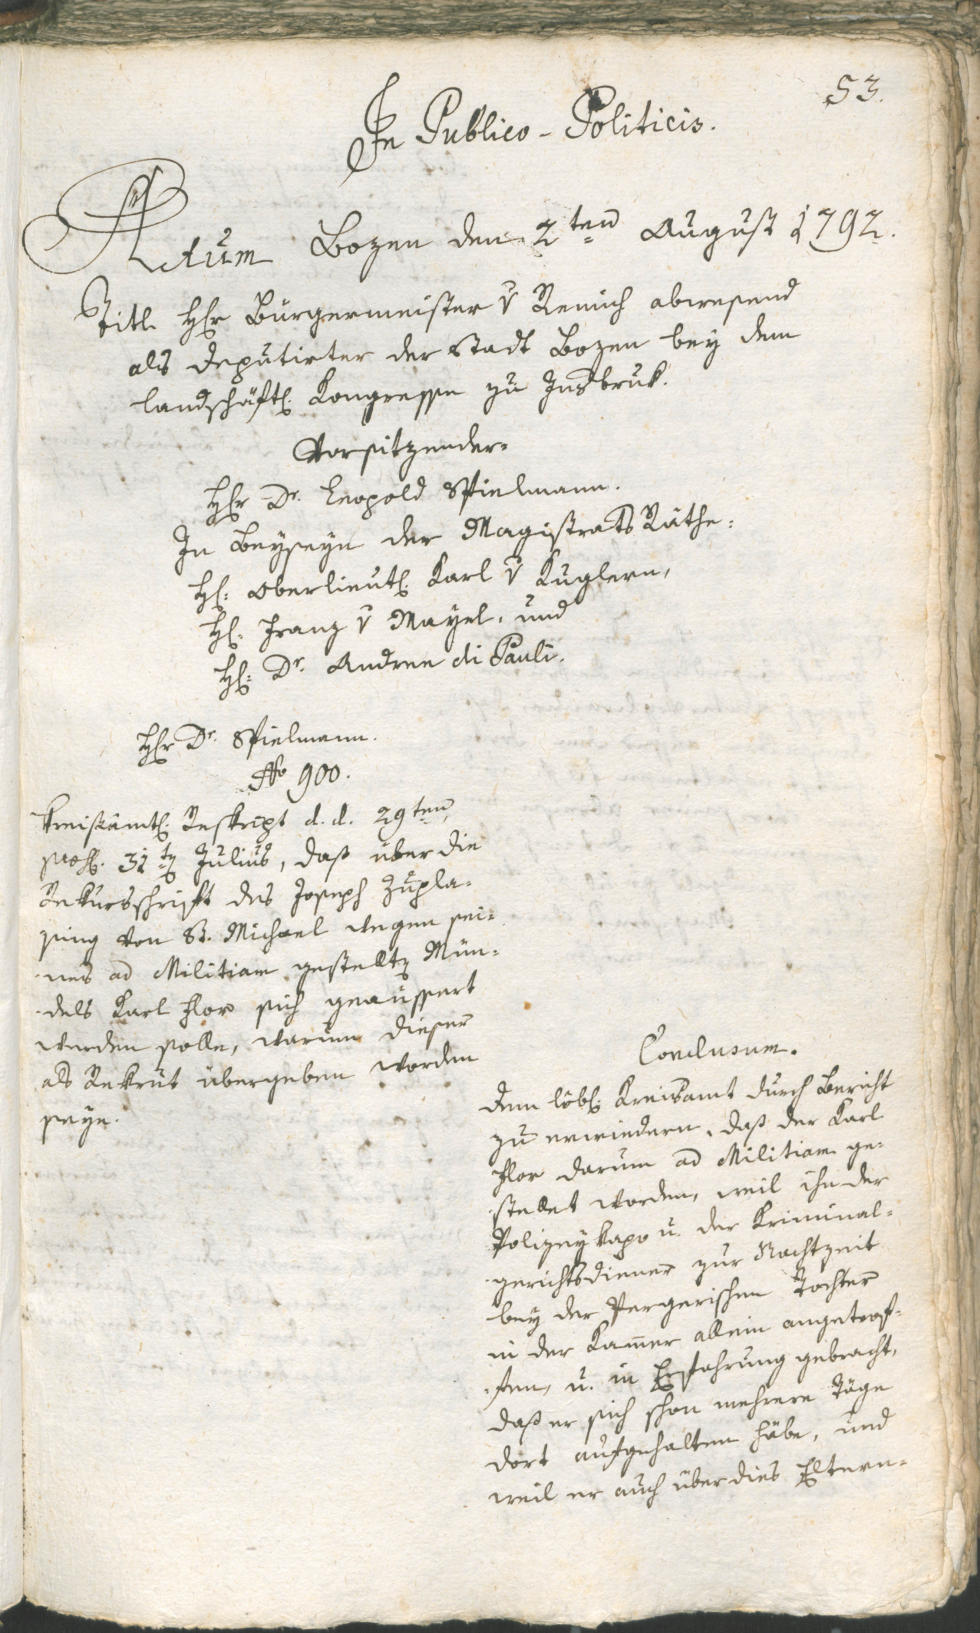 53.
In Publico-Politicis.
Actum Bozen den 2ten August 1792.
Titl. Hr Bürgermeister v Remich abwesend
als Deputirter der Stadt Bozen bey dem
landschäftl. Kongresse zu Insbruk.
Vorsitzender.
Hr Dr. Leopold Spielmann.
In Beyseyn der Magistrats Räthe:
H: Oberlieut: Karl v Kuglern,
H: Franz v Mayrl, und
H: Dr. Andree di Pauli.
Hr Dr. Spielmann.
No 900.
Kreisämtl. Reskript d. d. 29ten,
31t Julius, daß über die
Rekursschrift des Joseph Zupla-
sing von St. Michael wegen sei-
nes ad Militiam gestellt Mün-
dels Karl Flor sich geaüssert
werden solle, warum dieser
als Rekrut übergeben worden
seye.
Conclusum.
Dem löbl: Kreisamt durch Bericht
zu erwiedern, daß der Karl
Flor darum ad Militiam ge-
stellet worden, weil ihn der
Polizeykapo u. der Kriminal-
gerichtsdiener zur Nachtzeit
bey der Pergerischen Tochter
in der Kamer allein angetrof-
fen, u. in Erfahrung gebracht,
daß er sich schon mehrere Täge
dort aufgehalten habe, und
weil er auch überdies Eltern-